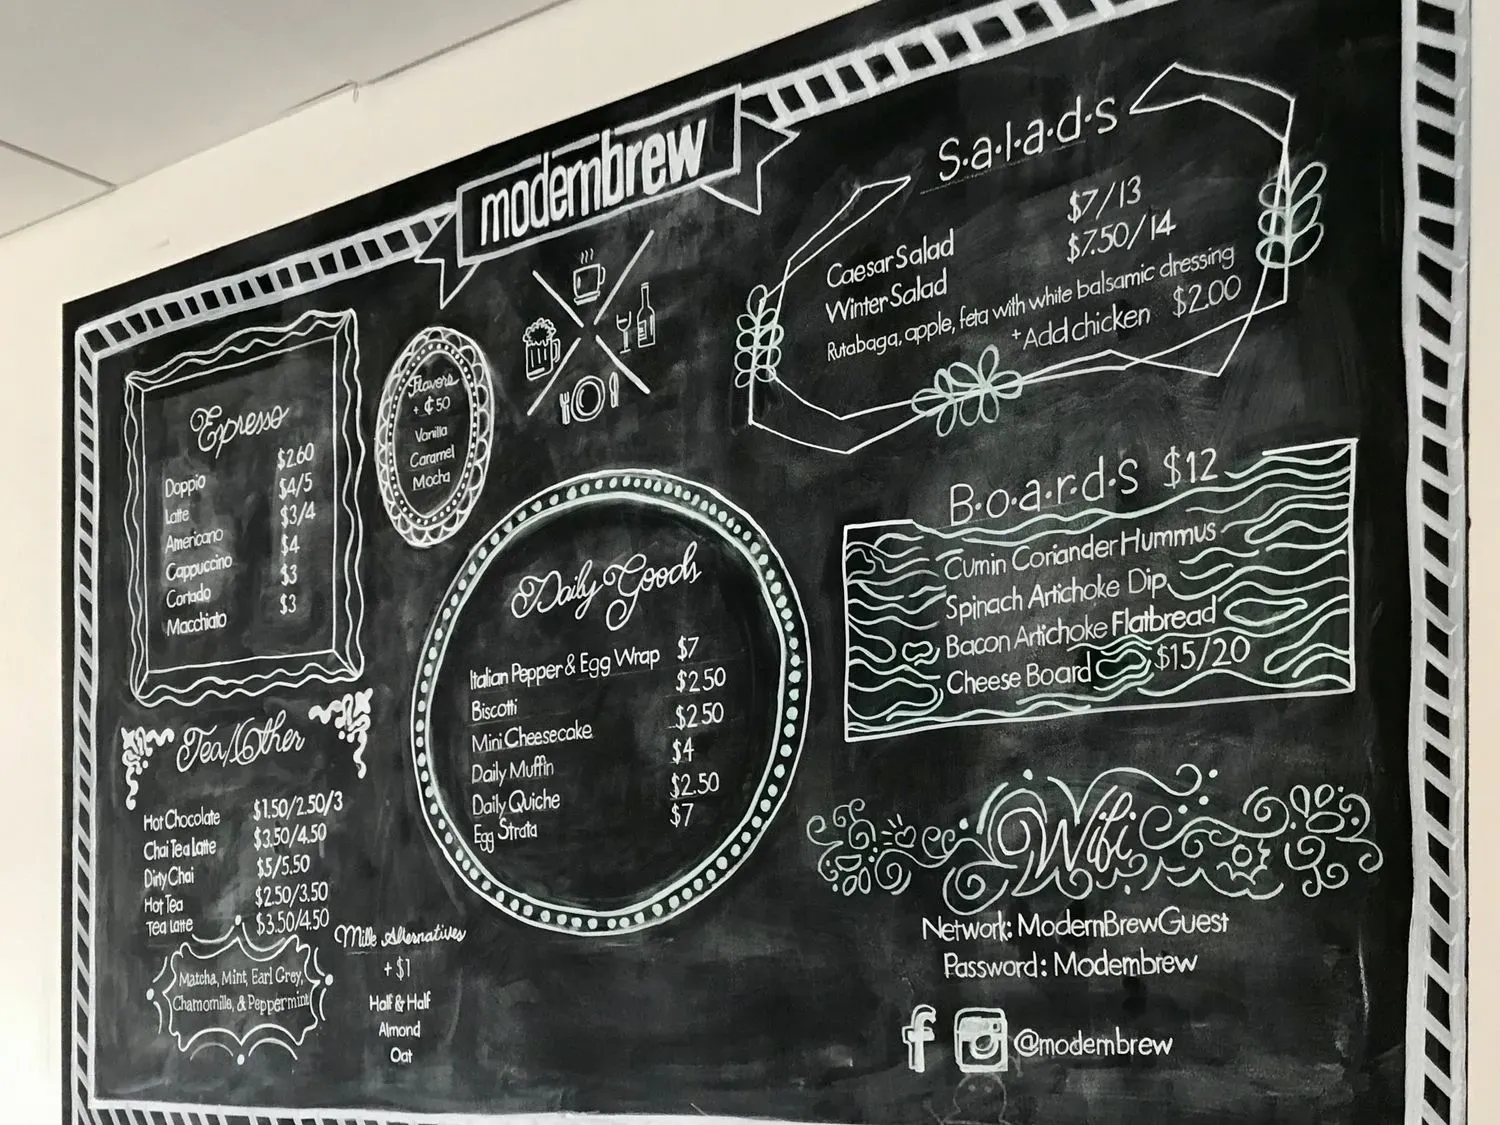 modernbrew
Espresso
Doppio $2.60
Latte $4/5
Americano $3/4
Cappuccino $4
Cortado $3
Macchiato $3
Flavors
+ ¢50
Vanilla
Caramel
Mocha
Tea/Other
Hot Chocolate $1.50/2.50/3
Chai Tea Latte $3.50/4.50
Dirty Chai $5/5.50
Hot Tea $2.50/3.50
Tea Latte $3.50/4.50
Matcha, Mint, Earl Grey,
Chamomille, & Peppermint
Milk Alternatives
+ $1
Half & Half
Almond
Oat
Daily Goods
Italian Pepper & Egg Wrap $7
Biscotti $2.50
Mini Cheesecake $2.50
Daily Muffin $4
Daily Quiche $2.50
Egg Strata $7
S.a.l.a.d.s
Caesar Salad $7/13
Winter Salad $7.50/14
Rutabaga, apple, feta with white balsamic dressing
+Add chicken $2.00
B.o.a.r.d.s $12
Cumin Coriander Hummus
Spinach Artichoke Dip
Bacon Artichoke Flatbread
Cheese Board $15/20
Wifi
Network: ModernBrewGuest
Password: Modernbrew
f @modernbrew